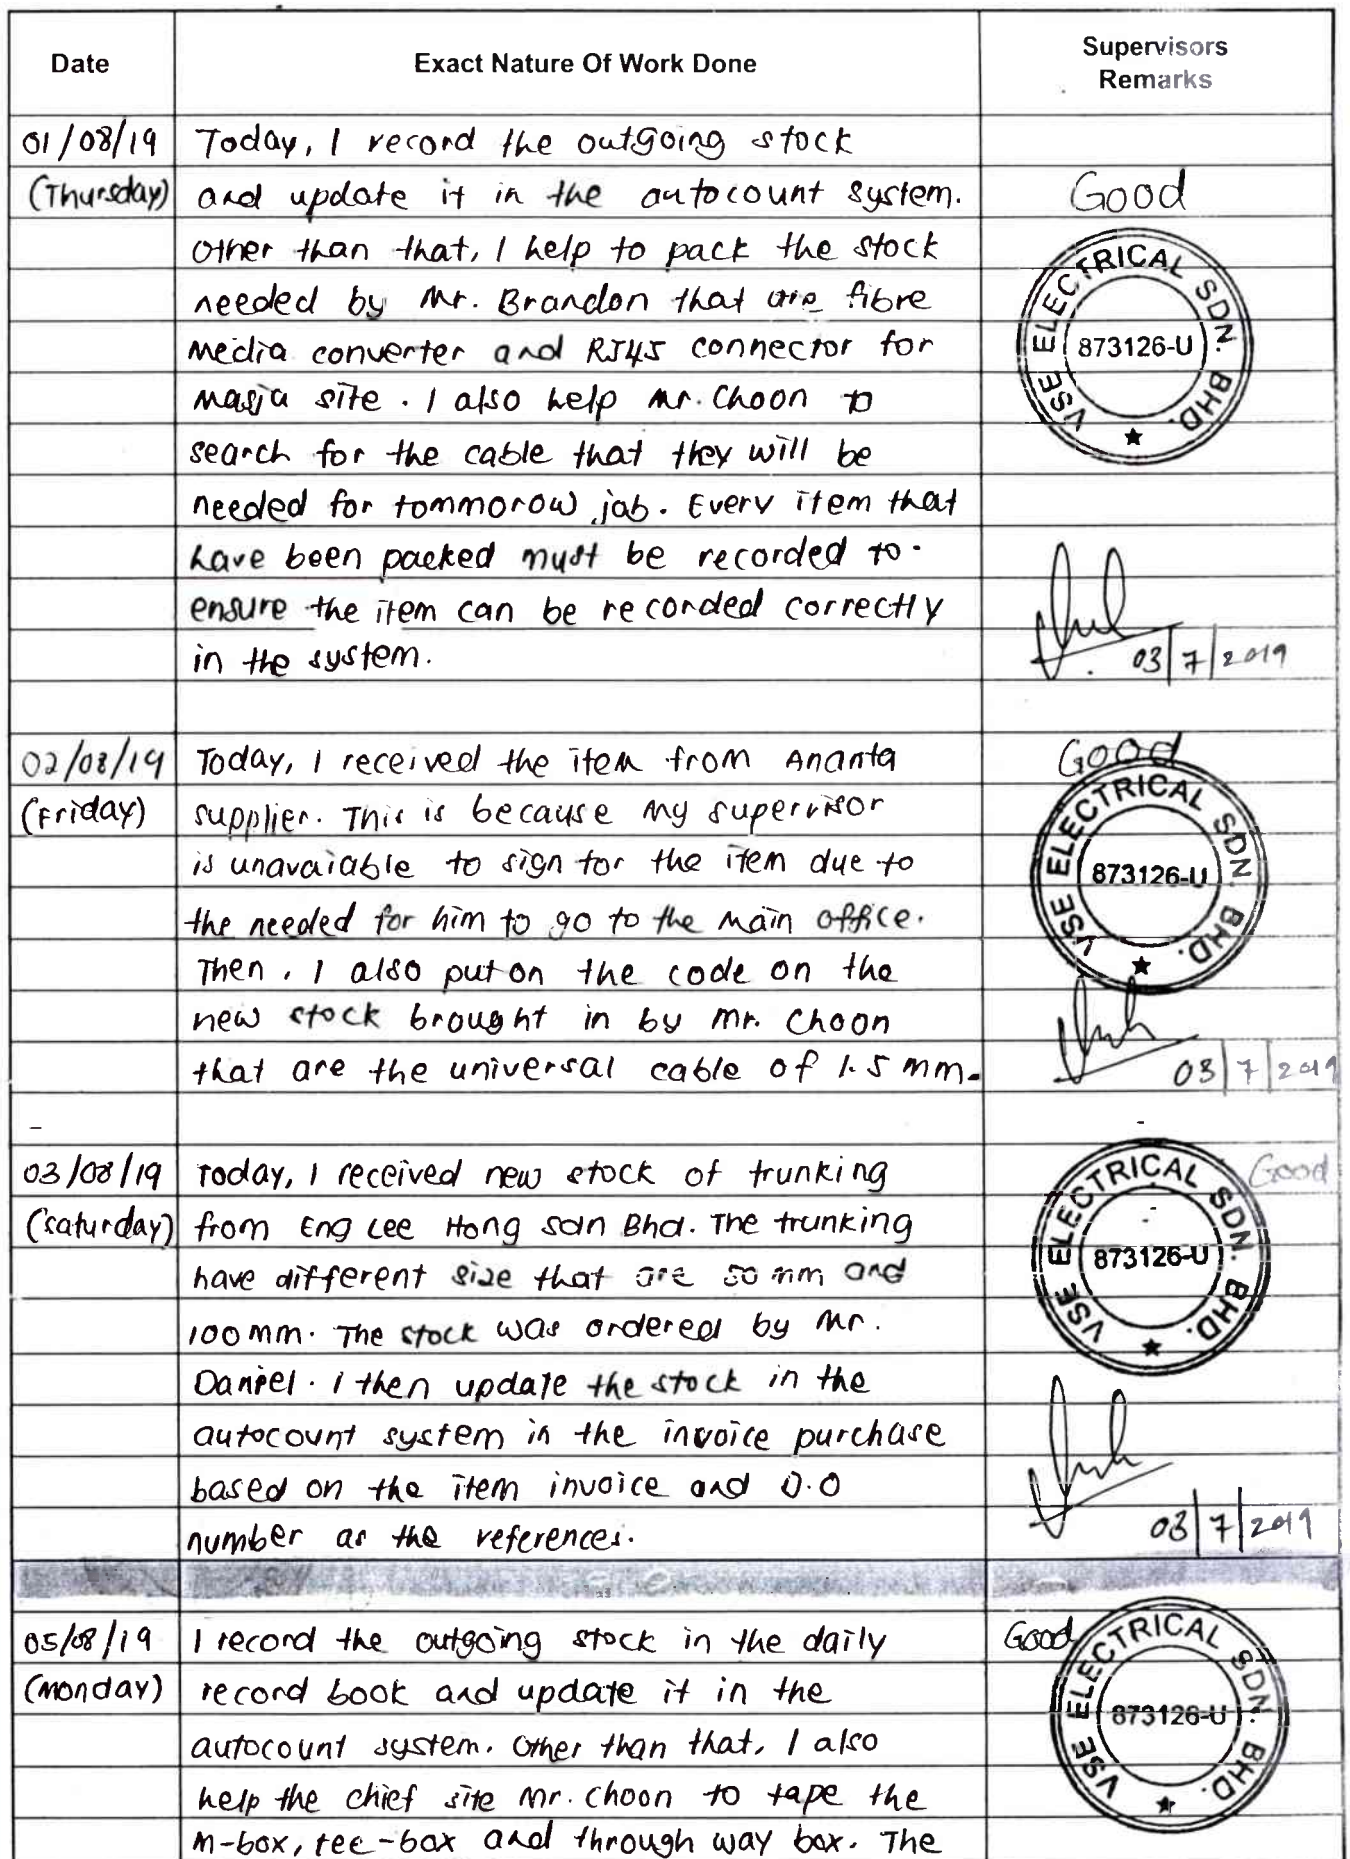 Date Exact Nature Of Work Done Supervisors Remarks
01/08/19 Today, I record the outgoing stock
(Thursday) and update it in the autocount system. Good
other than that, I help to pack the stock
needed by Mr. Brandon that are fibre
media converter and RJ45 connector for
masja site. I also help Mr. Choon to
search for the cable that they will be
needed for tommorow job. Every item that
have been packed must be recorded to
ensure the item can be recorded correctly
in the system. 03/7/2019
VSE ELECTRICAL SDN. BHD.
873126-U
02/08/19 Today, I received the item from Ananta Good
(Friday) supplier. This is because my supervisor
is unavaiable to sign for the item due to
the needed for him to go to the main office.
Then, I also put on the code on the
new stock brought in by Mr. Choon
that are the universal cable of 1.5 mm. 03/7/2019
VSE ELECTRICAL SDN. BHD.
873126-U
03/08/19 Today, I received new stock of trunking Good
(Saturday) from Eng Lee Hong Sdn Bhd. The trunking
have different size that are 50 mm and
100mm. The stock was ordered by Mr.
Daniel. I then update the stock in the
autocount system in the invoice purchase
based on the item invoice and D.O
number as the references. 03/7/2019
VSE ELECTRICAL SDN. BHD.
873126-U
05/08/19 I record the outgoing stock in the daily Good
(Monday) record book and update it in the
autocount system. Other than that, I also
help the chief site Mr. Choon to tape the
m-box, tee-box and through way box. The
VSE ELECTRICAL SDN. BHD.
873126-U